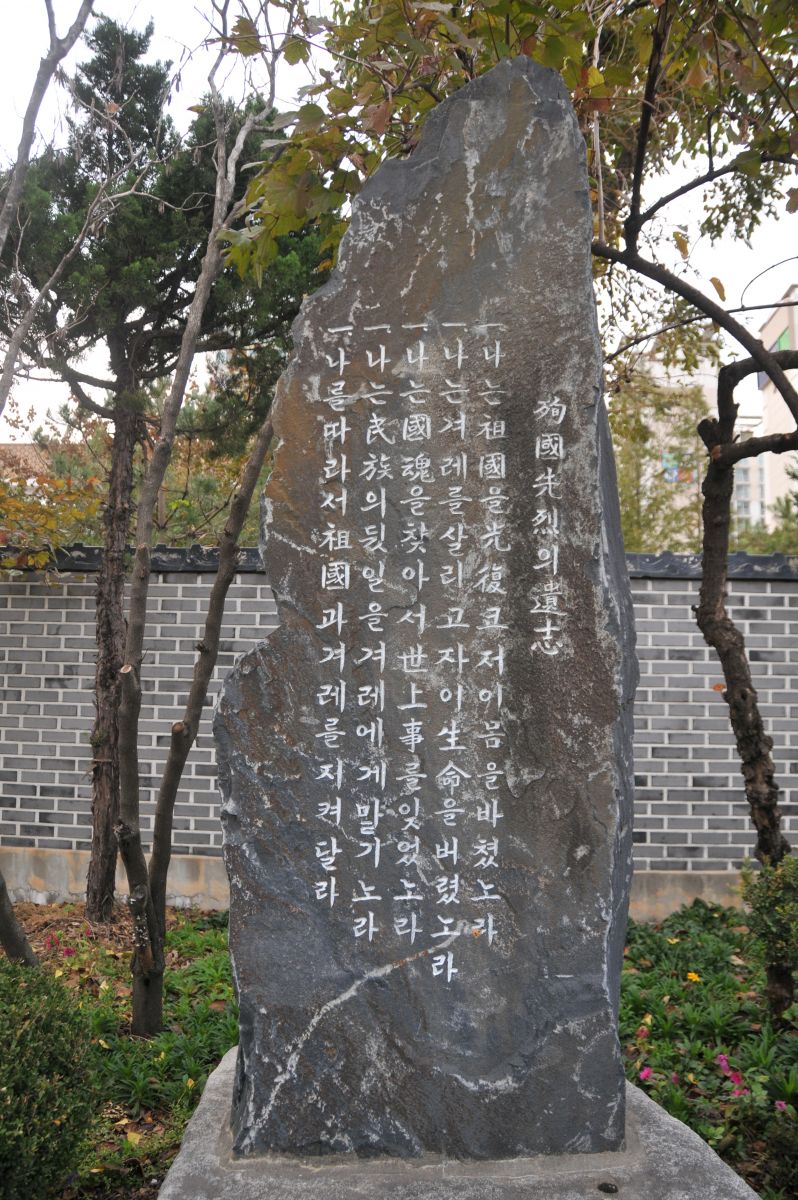 殉國先烈의遺志
一나는祖國을光復코저이몸을바쳤노라
一나는겨레를살리고자이生命을버렸노라
一나는國魂을찾아서世上事를잊었노라
一나는民族의뒷일을겨레에게맡기노라
一나를따라서祖國과겨레를지켜달라